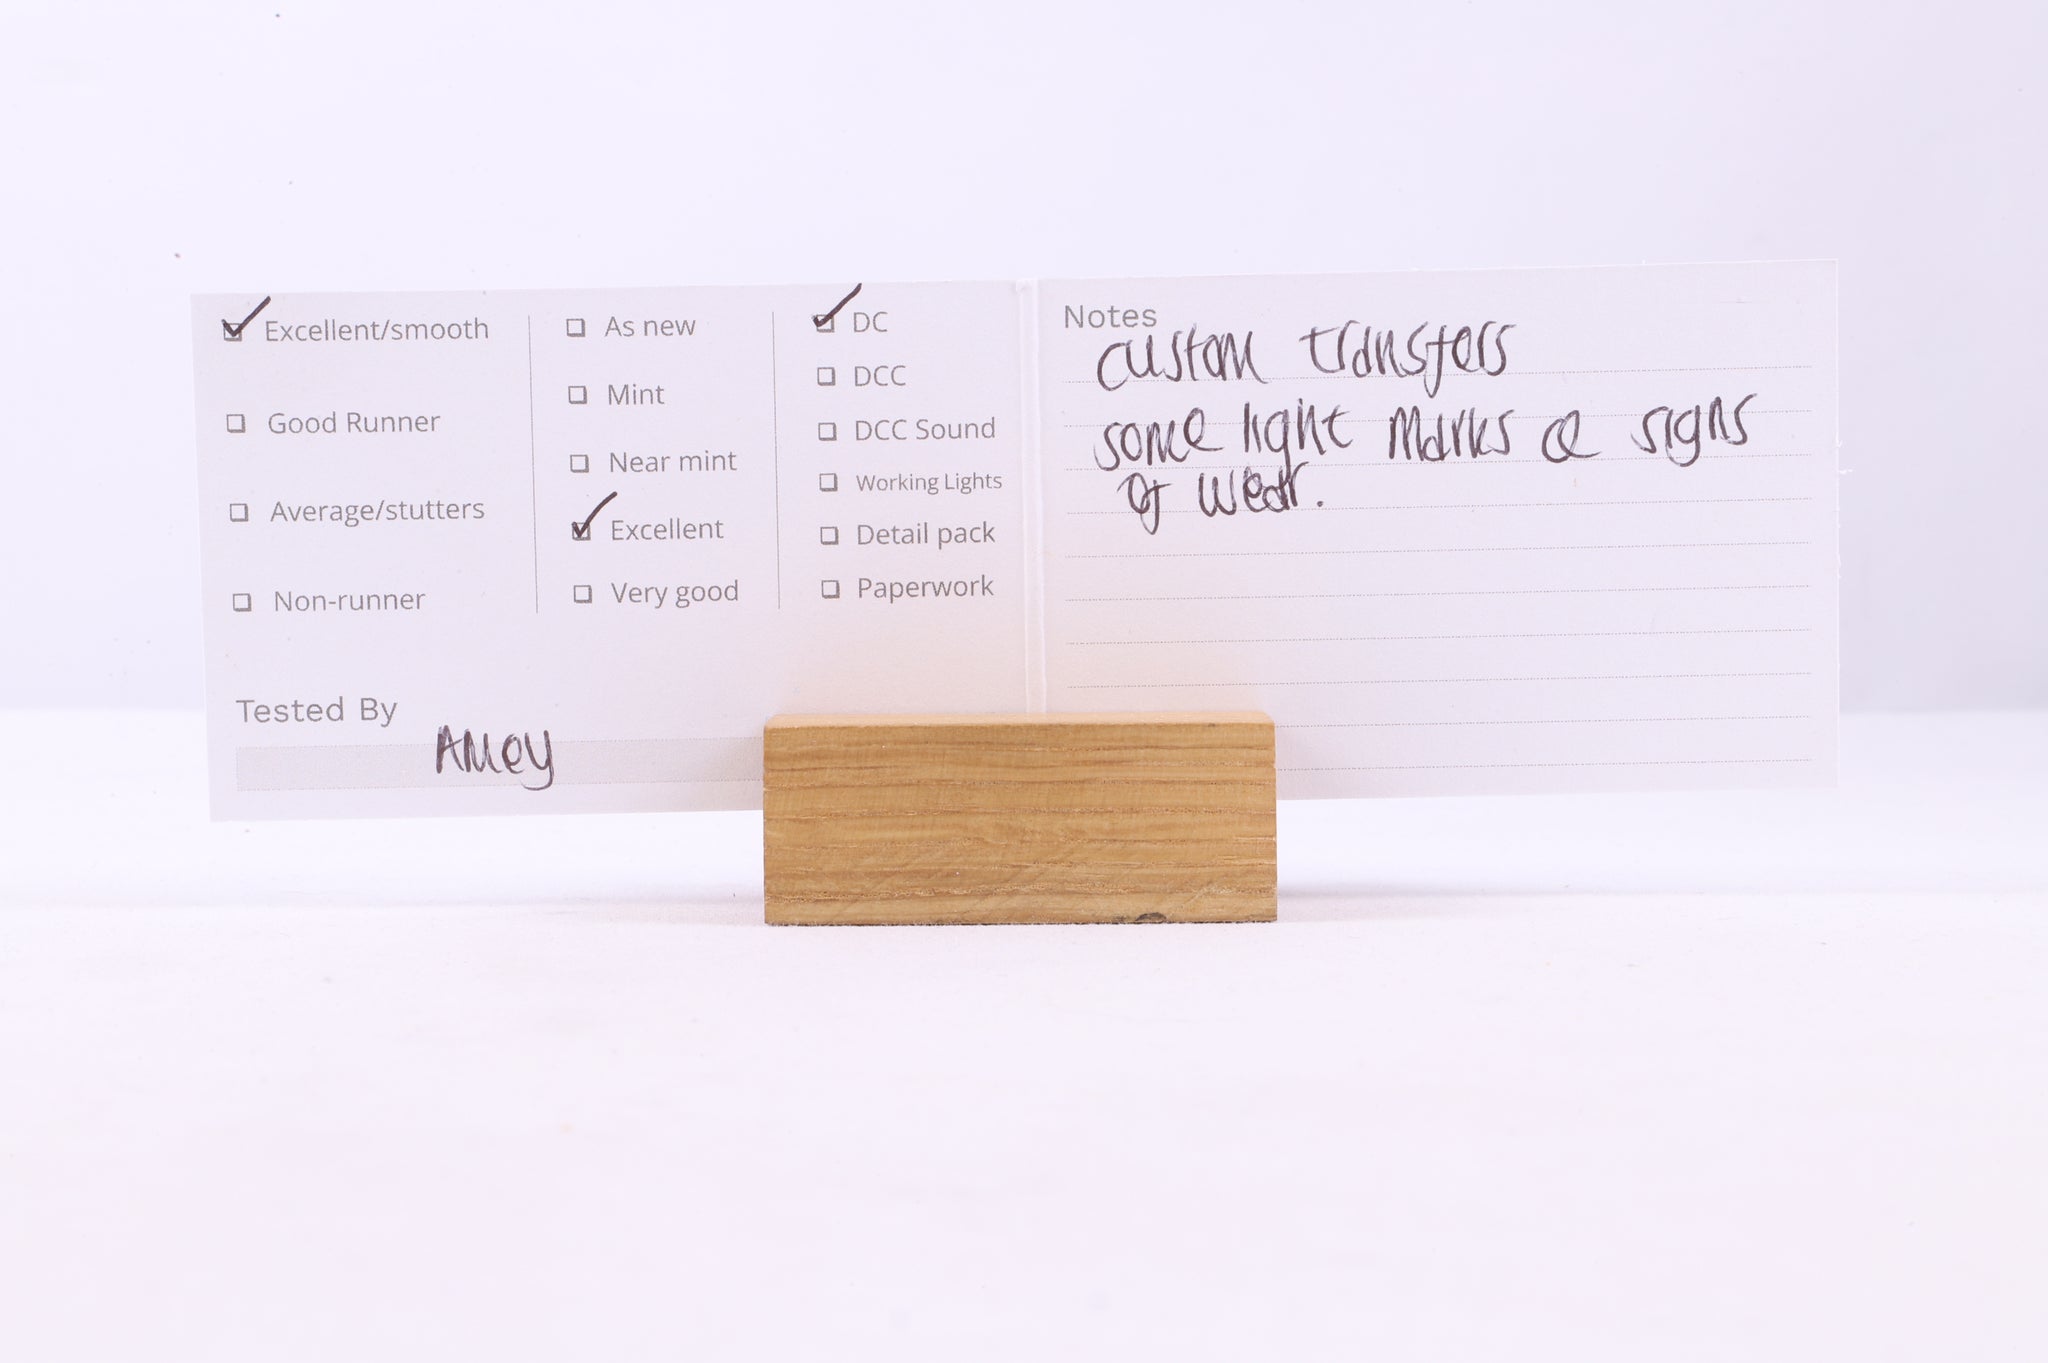 Excellent/smooth
Good Runner
Average/stutters
Non-runner
As new
Mint
Near mint
Excellent
Very good
DC
DCC
DCC Sound
Working Lights
Detail pack
Paperwork
Tested By
Notes
custom transfers
some light marks & signs
of wear.